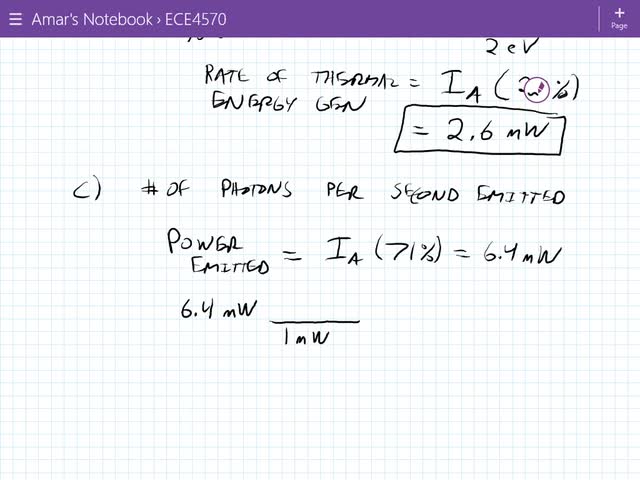 Amar's Notebook › ECE4570
Page
2 eV
RATE OF THERMAL = I_A ( %)
ENERGY GEN
= 2.6 mW
C) # OF PHOTONS PER SECOND EMITTED
POWER EMITTED = I_A (71%) = 6.4 mW
6.4 mW
1 mW